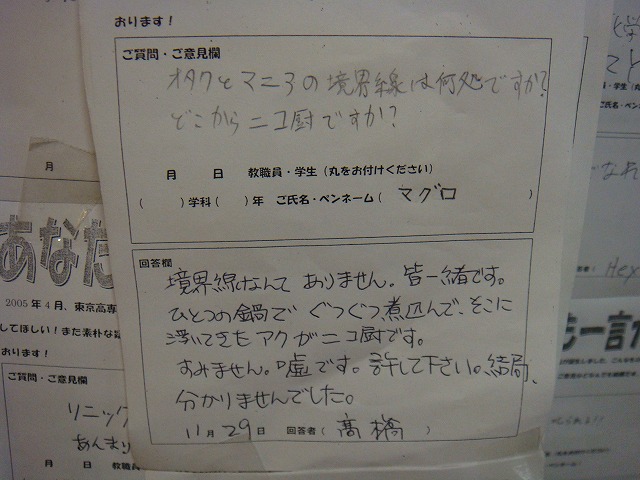 おります!
ご質問・ご意見欄
オタクとマニアの境界線は何処ですか?
どこからニコ厨ですか?
月 日 教職員・学生(丸をお付けください)
( )学科( )年 ご氏名・ペンネーム( マグロ )
回答欄
境界線なんてありません。皆一緒です。
ひとつの鍋でぐつぐつ煮込んで、そこに
浮いてきたアクがニコ厨です。
すみません。嘘です。許して下さい。結局、
分かりませんでした。
11月29日 回答者( 髙橋 )
月
あなた
2005年4月、東京高専
してほしい!また素朴な
おります!
ご質問・ご意見欄
リニック
あんまり
月 日 教職員
・学生(丸
ご氏名・ペン
Hex
も一言